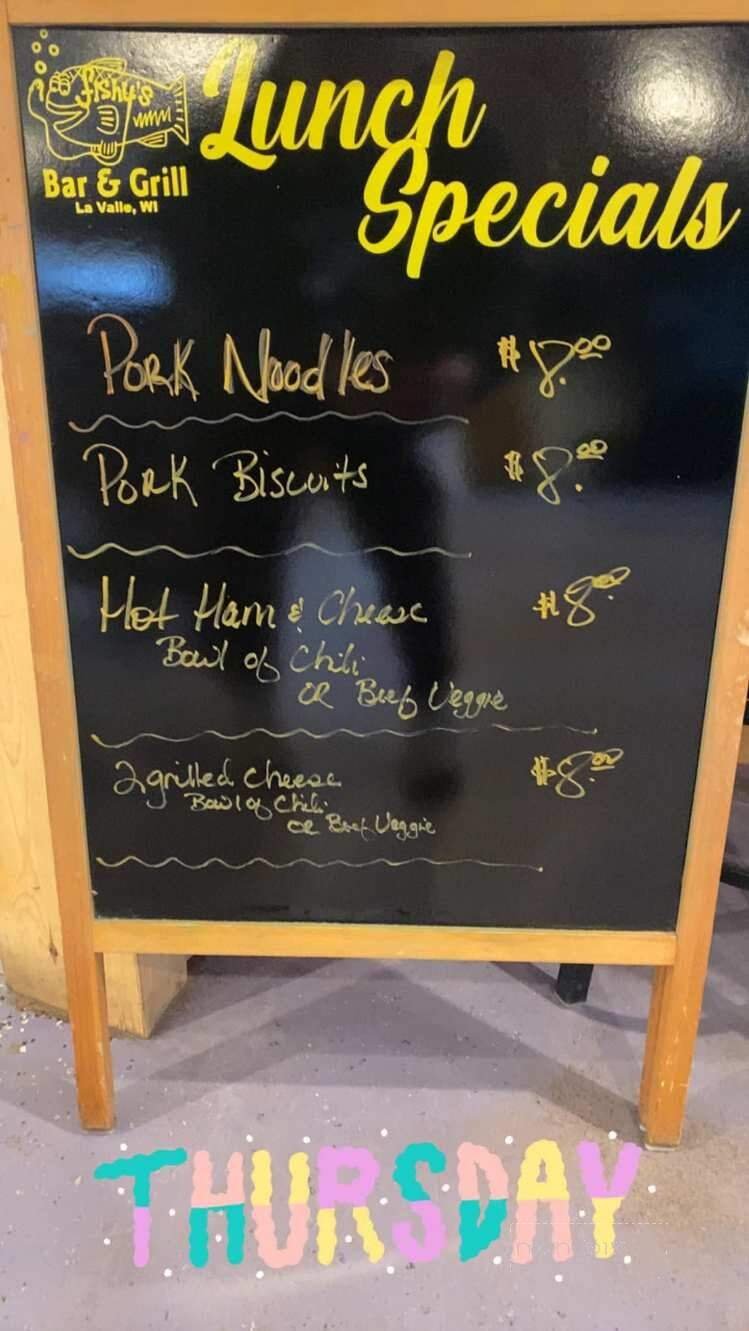 fishy's
Bar & Grill
La Valle, WI
Lunch
Specials
Pork Noodles $8.00
Pork Biscuits $8.00
Hot Ham & Cheese $8.00
Bowl of Chili
OR Beef Veggie
2 grilled cheese $8.00
Bowl of Chili
OR Beef Veggie
THURSDAY